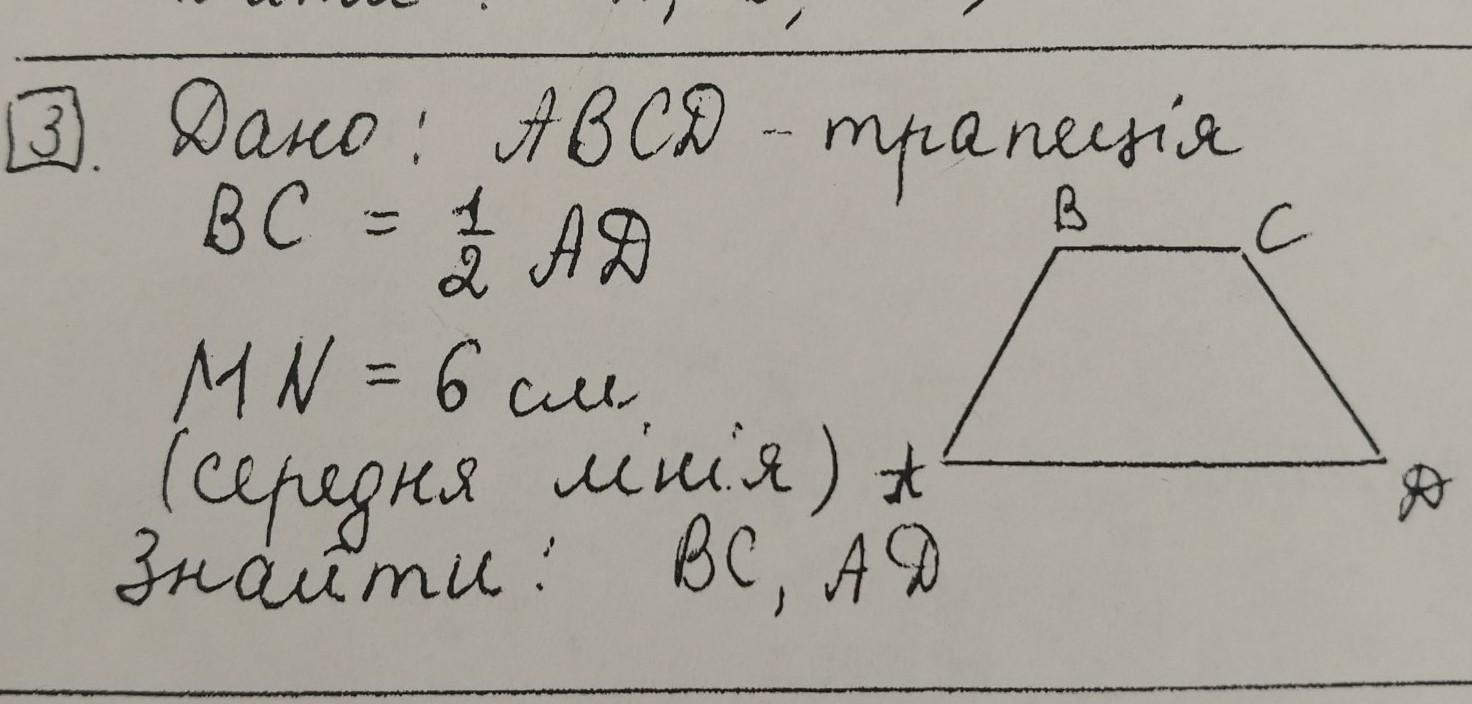 3. Дано: ABCD - трапеція
BC = 1/2 AD
MN = 6 см
(середня лінія)
Знайти: BC, AD
B
C
A
D